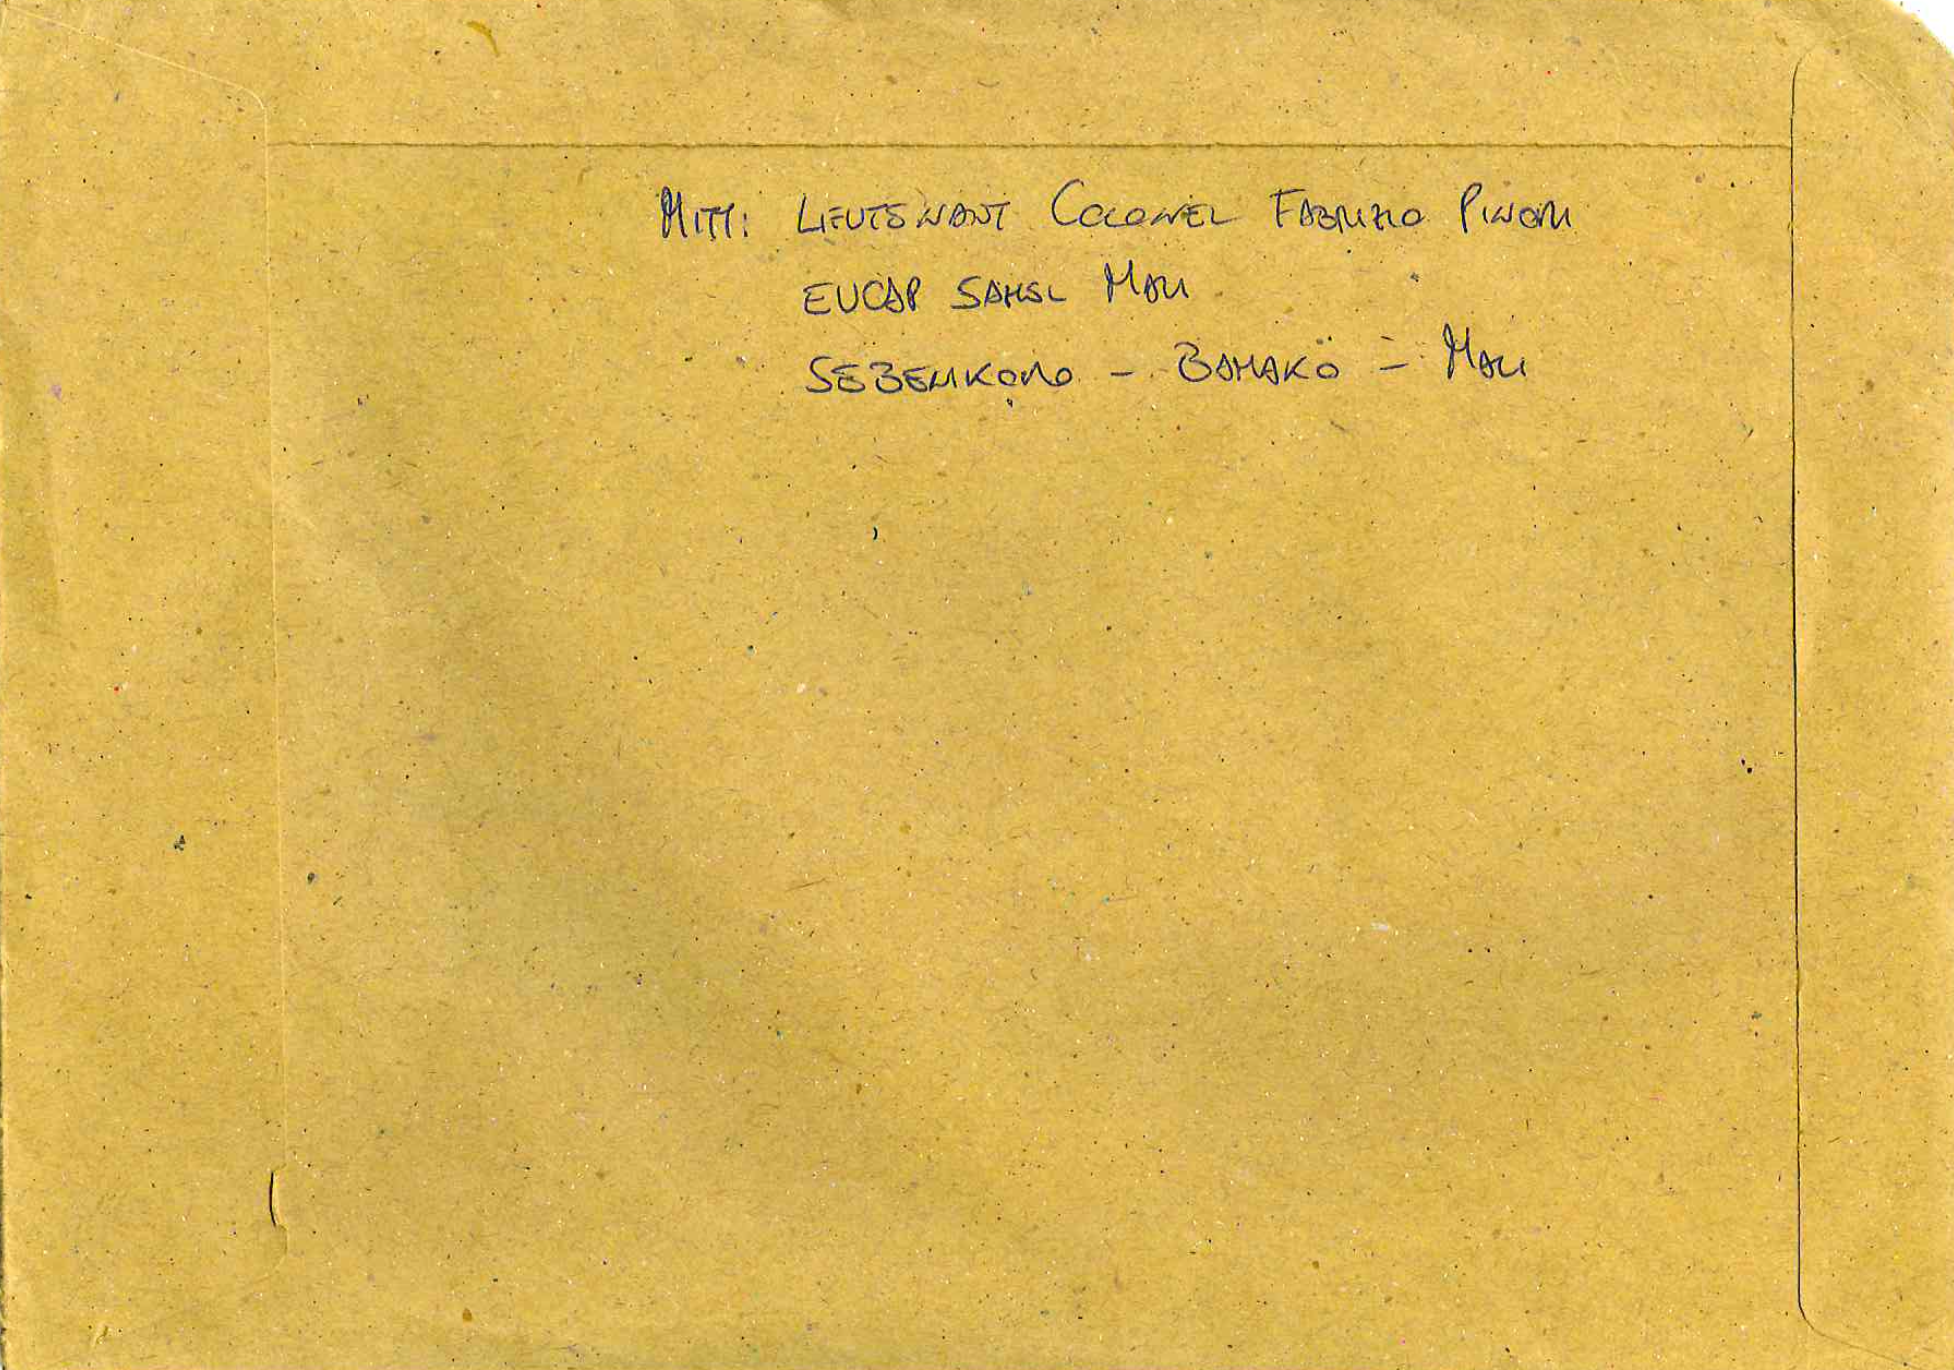 MITT: LIEUTENANT COLONEL FABRIZIO
EUCAP SAHEL MALI
SEBENIKORO - BAMAKO - MALI